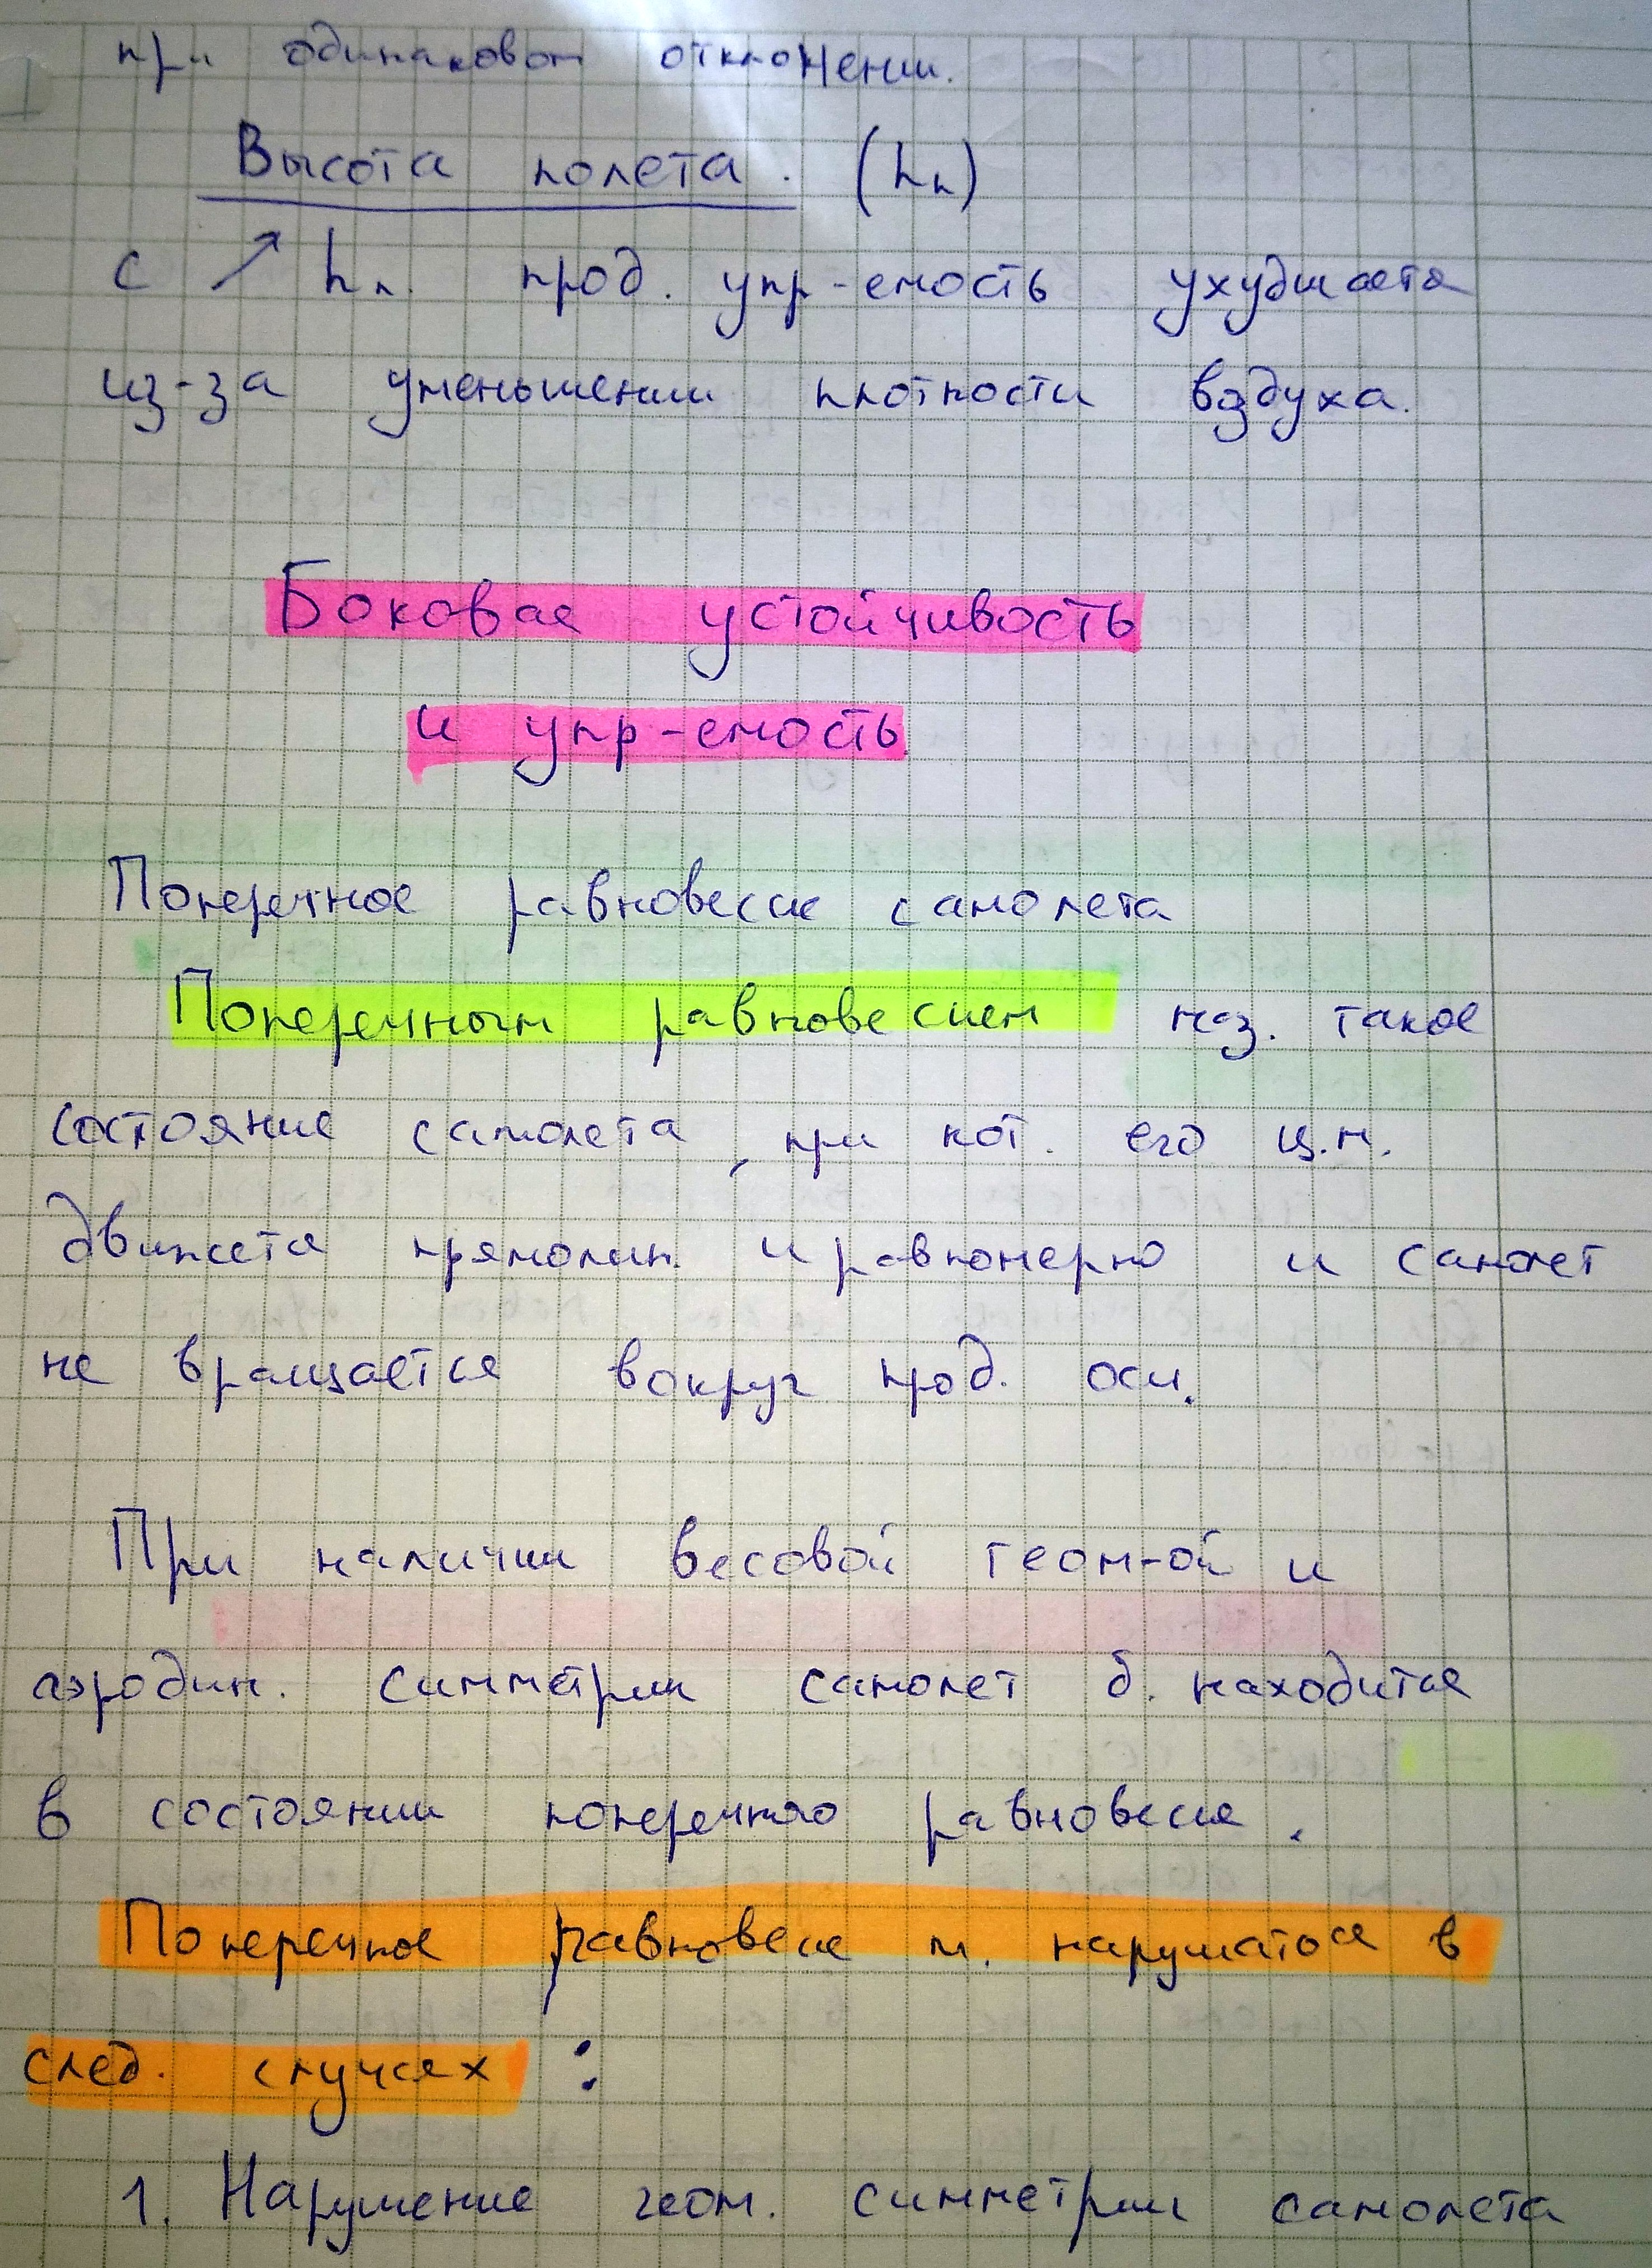 при одинаковом отклонении.
Высота полета. (hп)
с ↗ hп. прод. упр-емость ухудшается
из-за уменьшении плотности воздуха.
Боковая устойчивость
и упр-емость
Поперечное равновесие самолета
Поперечным равновесием наз. такое
состояние самолета, при кот. его ц.м.
движется прямолин. и равномерно и самолет
не вращается вокруг прод. оси.
При наличии весовой геом-ой и
аэродин. симметрии самолет б. находится
в состоянии поперечного равновесия.
Поперечное равновесие м. нарушатся в
след. случаях :
1. Нарушение геом. симметрии самолета